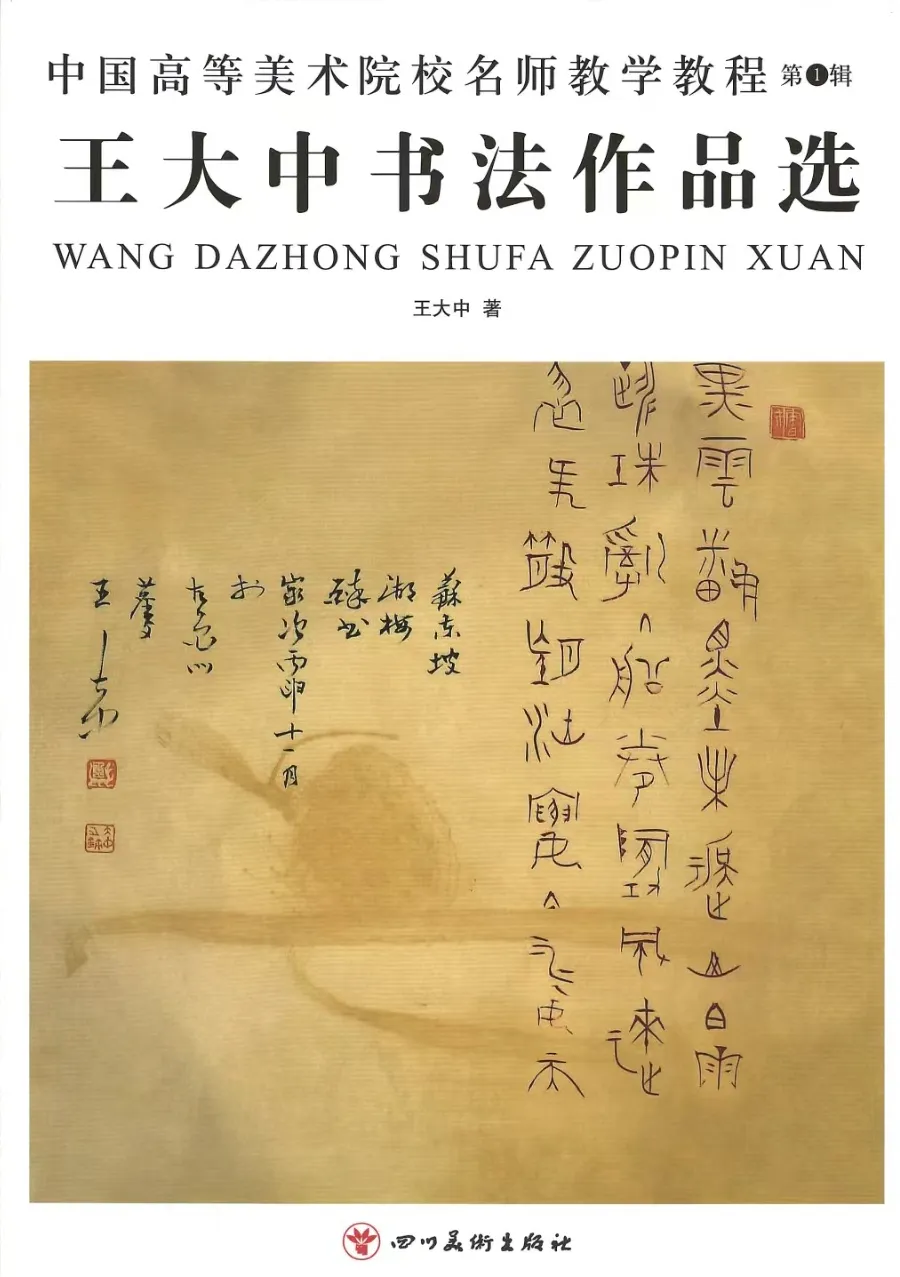 中国高等美术院校名师教学教程 第1辑
王大中书法作品选
WANG DAZHONG SHUFA ZUOPIN XUAN
王大中 著
黑雲翻墨未遮山白雨
跳珠亂入船卷地風來
忽散望湖樓下水如天
蘇東坡
湖樓
醉書
歲次丙申十一月
於
王大中
四川美術出版社